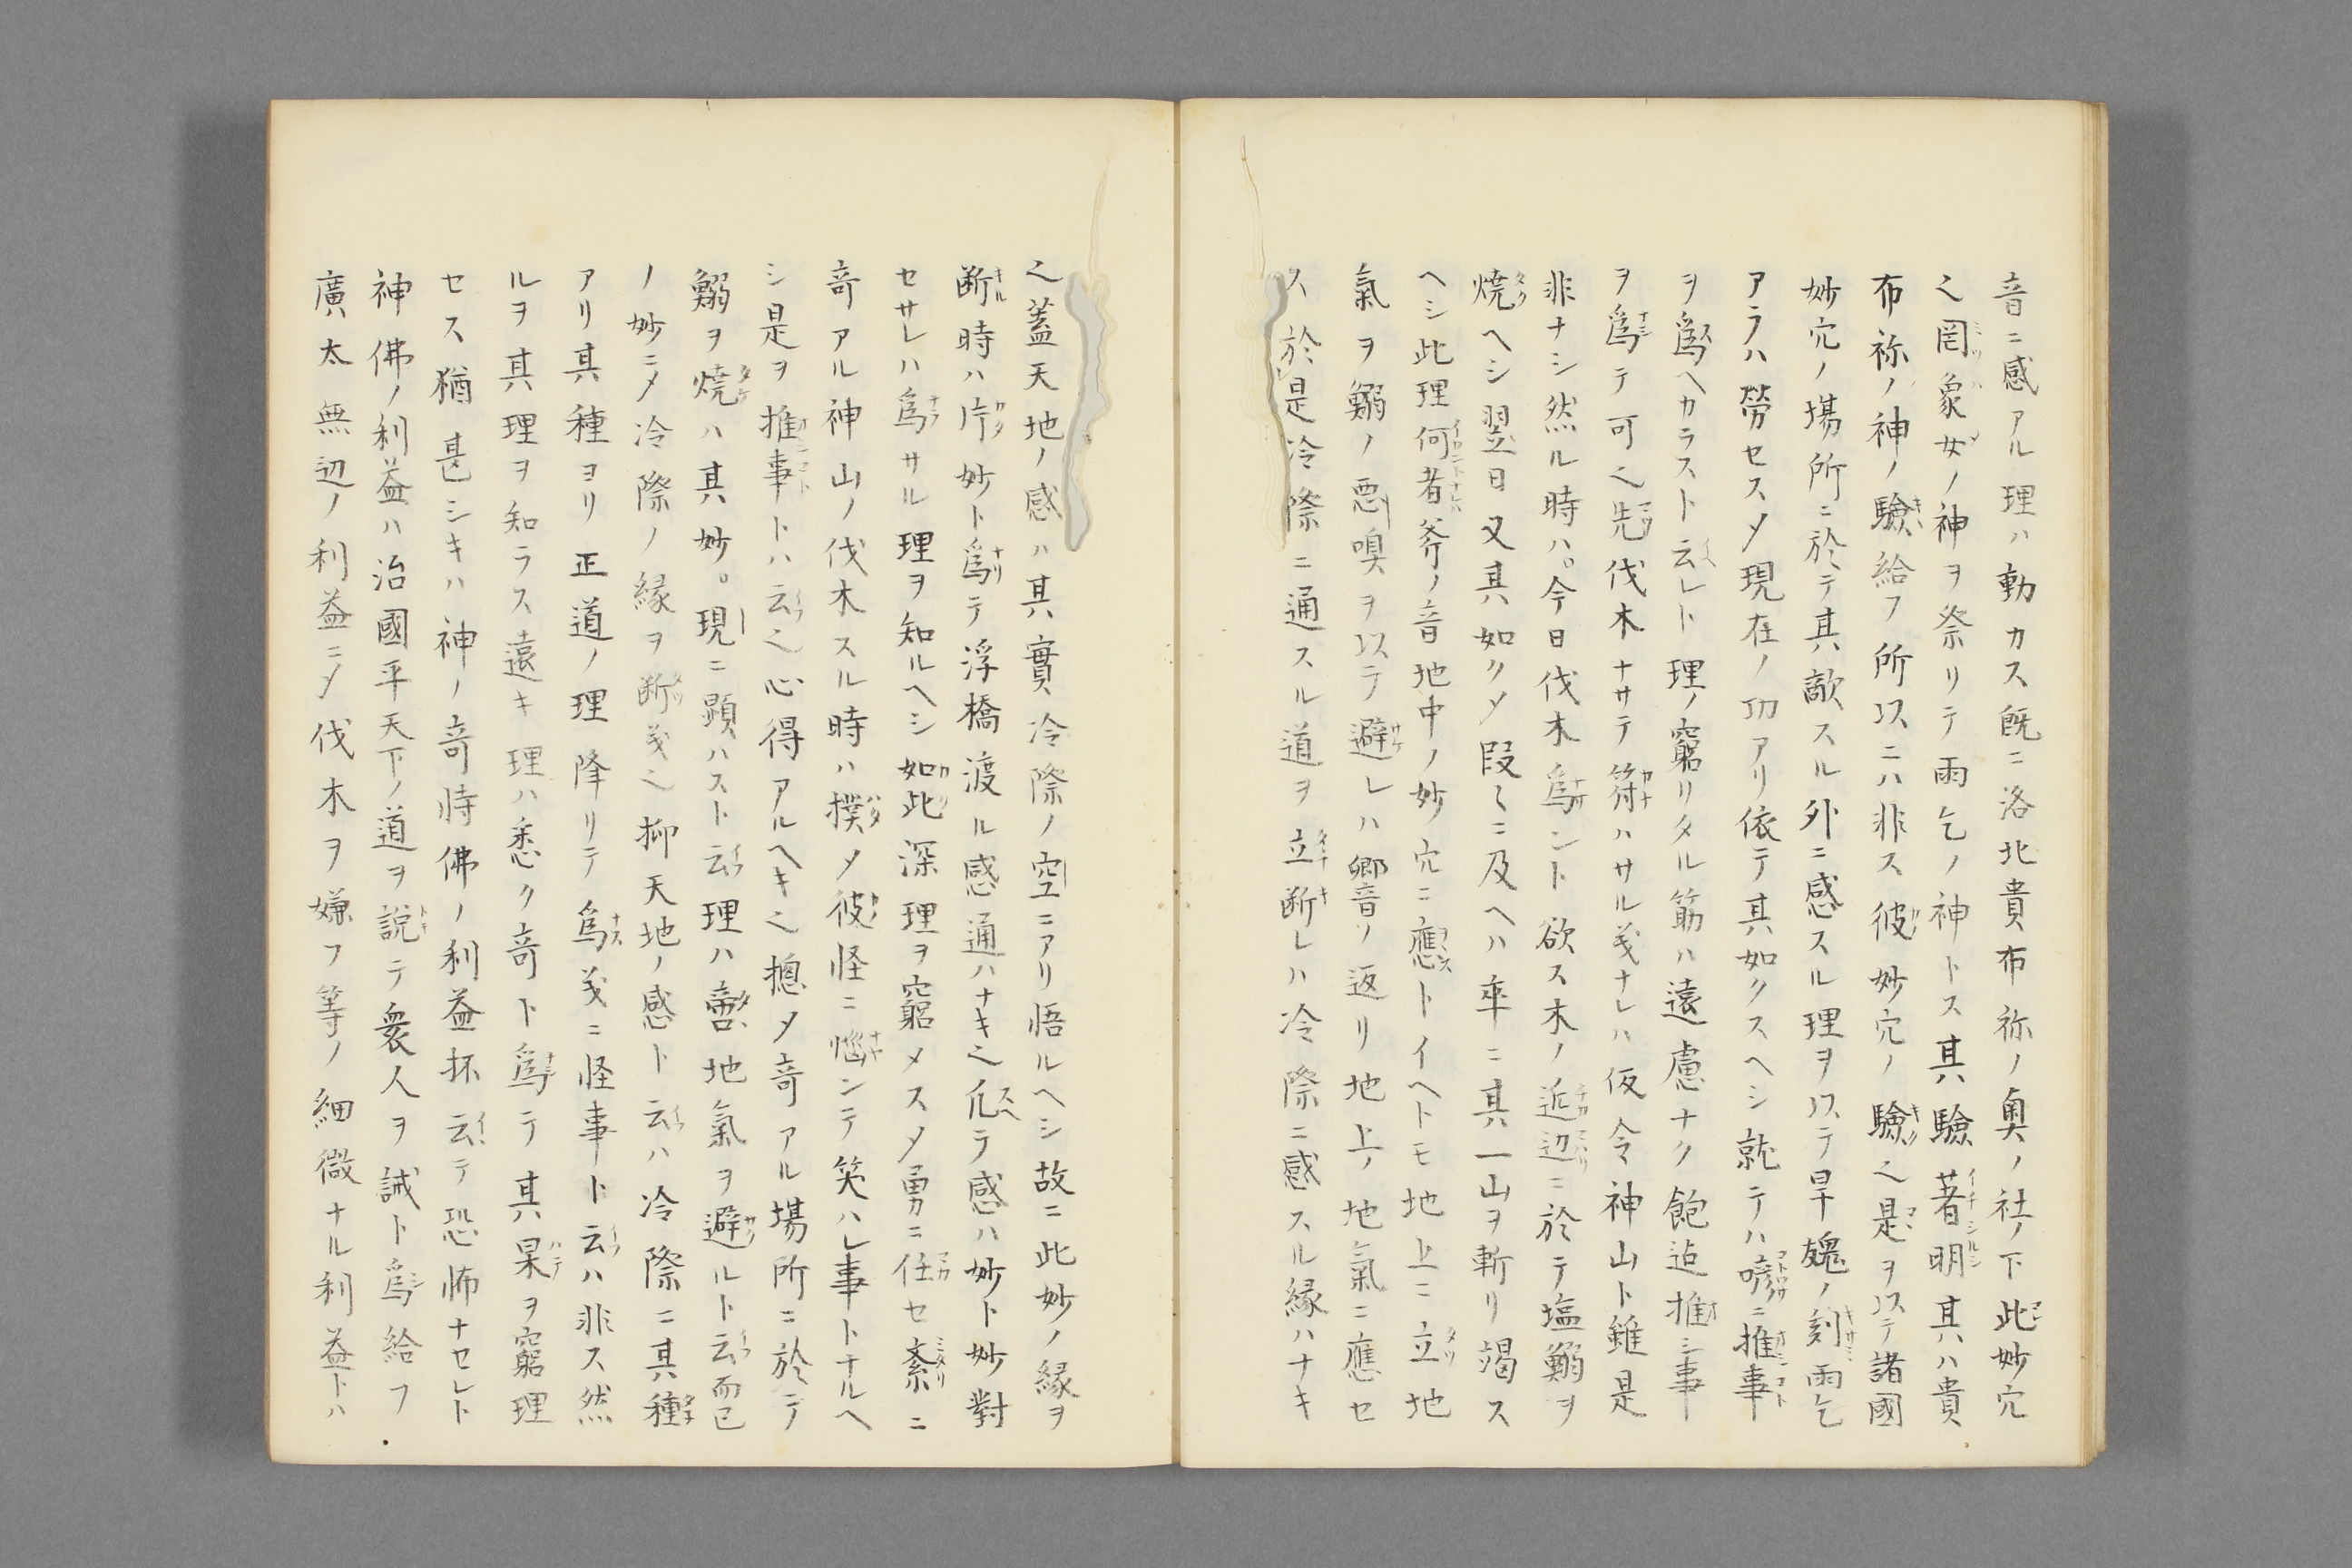 音ニ感アル理ハ動カス既ニ洛北貴布祢ノ奥ノ社ノ下此妙穴
之罔象女ノ神ヲ祭リテ雨乞ノ神トス其驗著明其ハ貴
布祢ノ神ノ驗給フ所以ニハ非ス彼妙穴ノ驗之是ヲ以テ諸國
妙穴ノ場所ニ於テ其敵スル外ニ感スル理ヲ以テ旱魃ノ刻雨乞
アラハ勞セスメ現在ノ功アリ依テ其如クスヘシ就テハ推事
ヲ爲ヘカラスト云レト理ノ窮リタル筋ハ遠慮ナク飽迠推シ事
ヲ爲テ可之先伐木ナサテ符ハサル義ナレハ仮令神山ト雖是
非ナシ然ル時ハ。今日伐木爲ント欲ス木ノ近辺ニ於テ塩鰯ヲ
燒ヘシ翌日又其如クメ叚〻ニ及ヘハ率ニ其一山ヲ斬リ竭ス
ヘシ此理何者斧ノ音地中ノ妙穴ニ應トイヘトモ地上ニ立地
氣ヲ鰯ノ悪嗅ヲ以テ避レハ郷音ノ返リ地上ノ地氣ニ應セ
ス於是冷際ニ通スル道ヲ立断レハ冷際ニ感スル縁ハナキ
之蓋天地ノ感ハ其實冷際ノ空ニアリ悟ルヘシ故ニ此妙ノ縁ヲ
断時ハ片妙ト爲テ浮橋渡ル感通ハナキ之凢テ感ハ妙ト妙對
セサレハ爲サル理ヲ知ルヘシ如此深理ヲ窮メスメ勇ニ任セ紊ニ
竒アル神山ノ伐木スル時ハ撲メ彼怪ニ惱ンテ笑ハレ事トナルヘ
シ是ヲ推事トハ云之心得アルヘキ之摠メ竒アル場所ニ於テ
鰯ヲ燒ハ其妙。現ニ顕ハスト云理ハ啻地氣ヲ避ルト云而已
ノ妙ニメ冷際ノ縁ヲ断義之抑天地ノ感ト云ハ冷際ニ其種
アリ其種ヨリ正道ノ理降リテ爲義ニ怪事ト云ハ非ス然
ルヲ其理ヲ知ラス遠キ理ハ悉ク竒ト爲テ其杲ヲ窮理
セス猶甚シキハ神ノ竒恃佛ノ利益抔云テ恐怖ナセレト
神佛ノ利益ハ治國平天下ノ道ヲ説テ衆人ヲ誡ト爲給フ
廣太無辺ノ利益ニメ伐木ヲ嫌フ等ノ細微ナル利益トハ